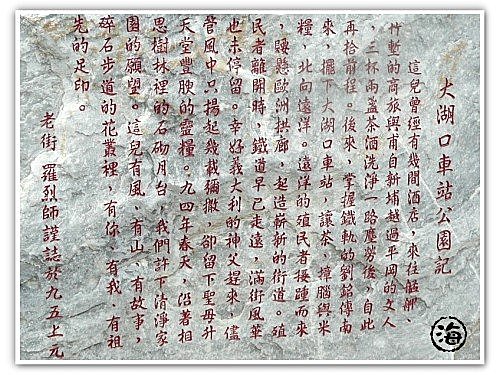 大湖口車站公園記
這兒曾經有幾間酒店，來往艋舺、
竹塹的商旅與甫自新埔越過平岡的文人
，三杯兩盞茶酒洗淨一路塵勞後，自此
再拾前程。後來，掌握鐵軌的劉銘傳南
來，擺下大湖口車站，讓茶、樟腦與米
糧，北向遠洋。遠洋的殖民者接踵而來
，腰懸歐洲拱廊，起造嶄新的街道。殖
民者離開時，鐵道早已走遠，滿街風華
也未停留。幸好義大利的神父趕來，儘
管風中只揚起幾截彌撒，卻留下聖母升
天堂豐腴的靈糧。九四年春天，沿著相
思樹林裡的石砌月台，我們許下清淨家
園的願望。這兒有風，有山，有故事，
碎石步道的花叢裡，有你、有我、有祖
先的足印。
老街 羅烈師謹誌於九五上元
海